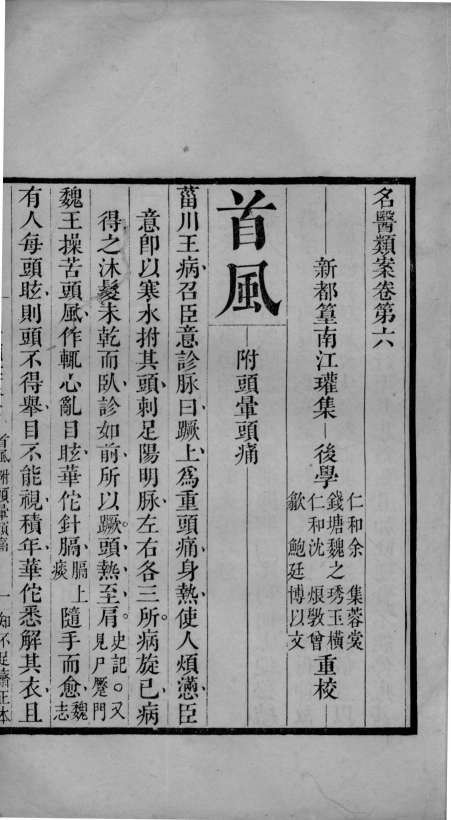 名醫類案卷第六
新都篁南江瓘集 後學
仁和余 集蓉裳
錢塘魏之琇玉橫
仁和沈 烺敩曾
歙 鮑廷博以文
重校
首風 附頭暈頭痛
菑川王病召臣意診脉曰蹶上為重頭痛身熱使人煩懣臣
意卽以寒水拊其頭刺足陽明脉左右各三所病旋已病
得之沐髮未乾而臥診如前所以蹶頭熱至肩史記。又見尸蹷門
魏王操苦頭風作輒心亂目眩華佗針膈膈上痰隨手而愈魏志
有人每頭眩則頭不得舉目不能視積年華佗悉解其衣且
首風 附頭暈頭痛 一 知不足齋正本